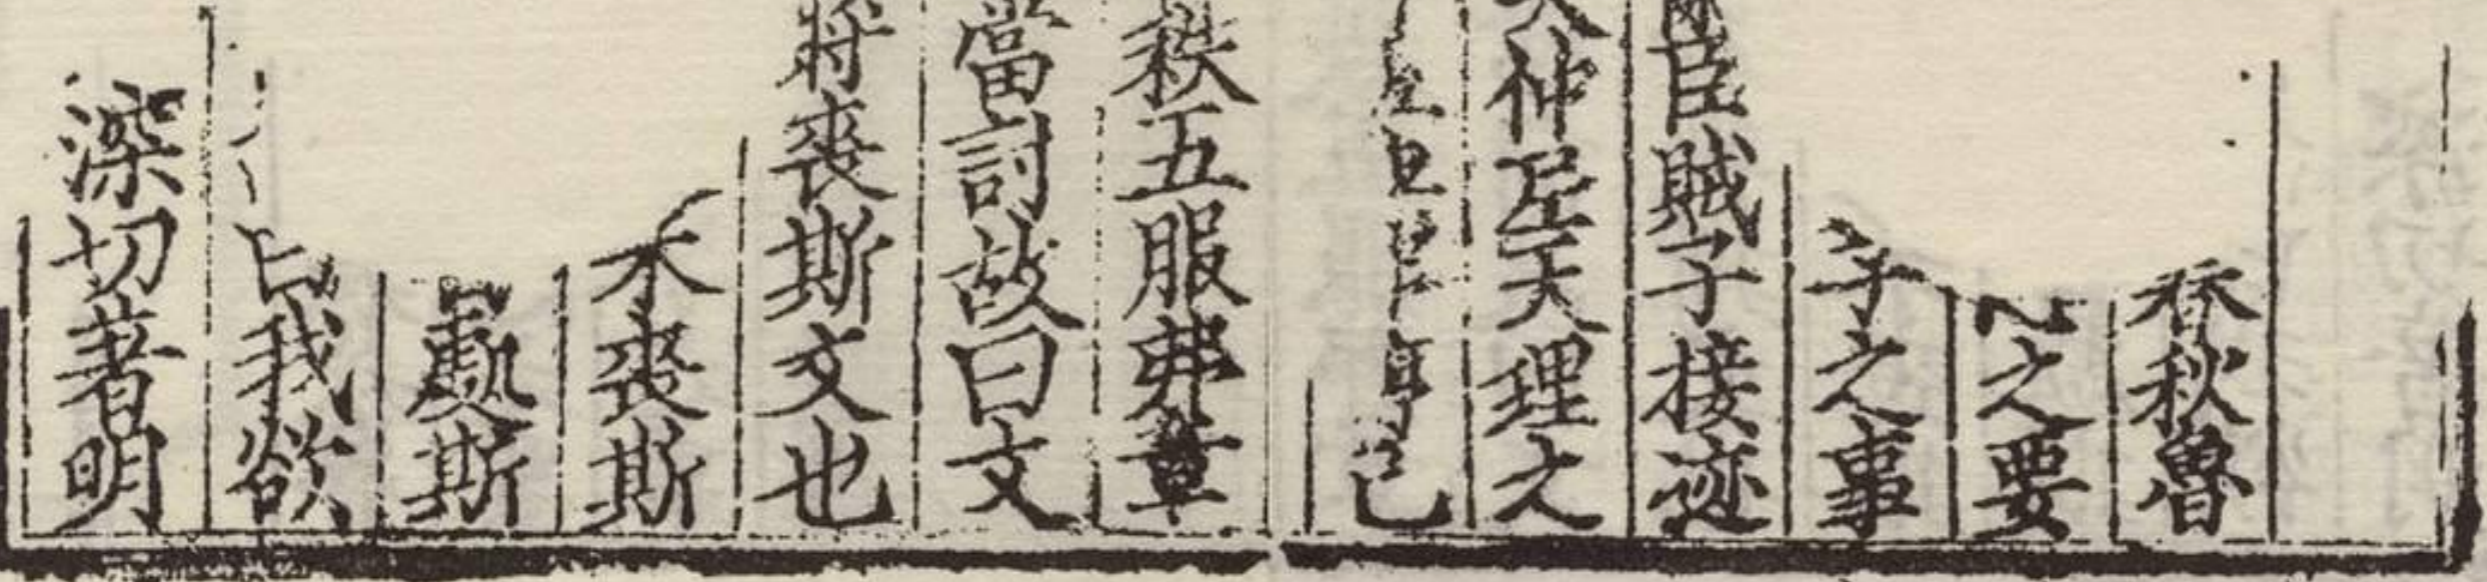 春秋魯
之要
子之事
臣賊子接迹
仲尼天理之
已
秩五服弗章
當討故曰文
將喪斯文也
不喪斯
斯
我欲
深切著明